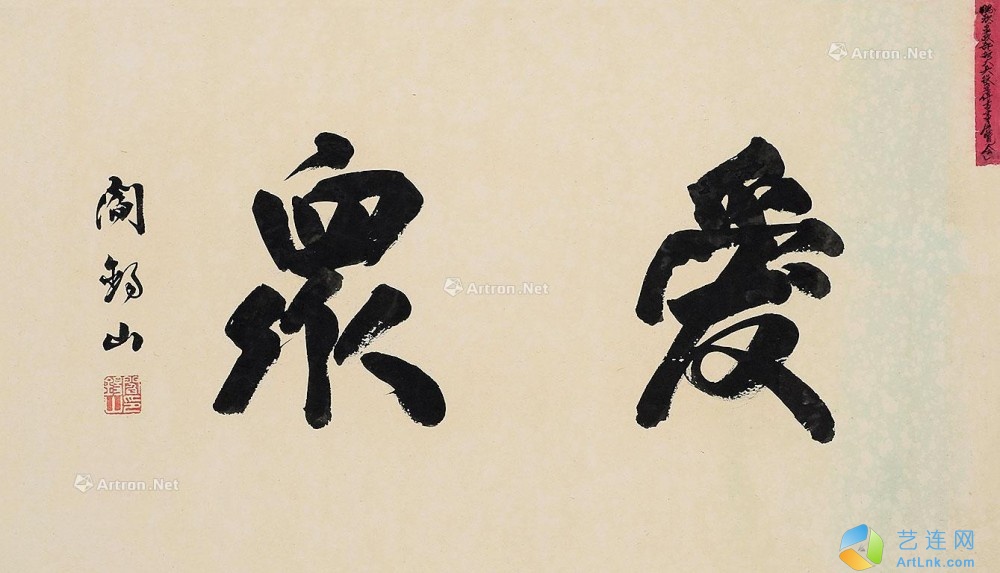 愛眾
閻錫山
閻錫山印
Artron.Net
Artron.Net
Artron.Net
艺连网
ArtLnk.com